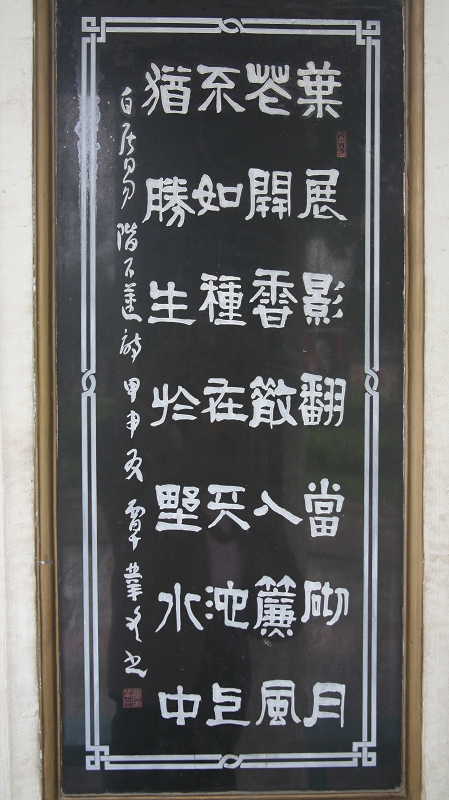 葉展影翻當砌月
花開香散入簾風
不如種在天池上
猶勝生於野水中
白居易階下蓮詩 甲申夏 覃業書